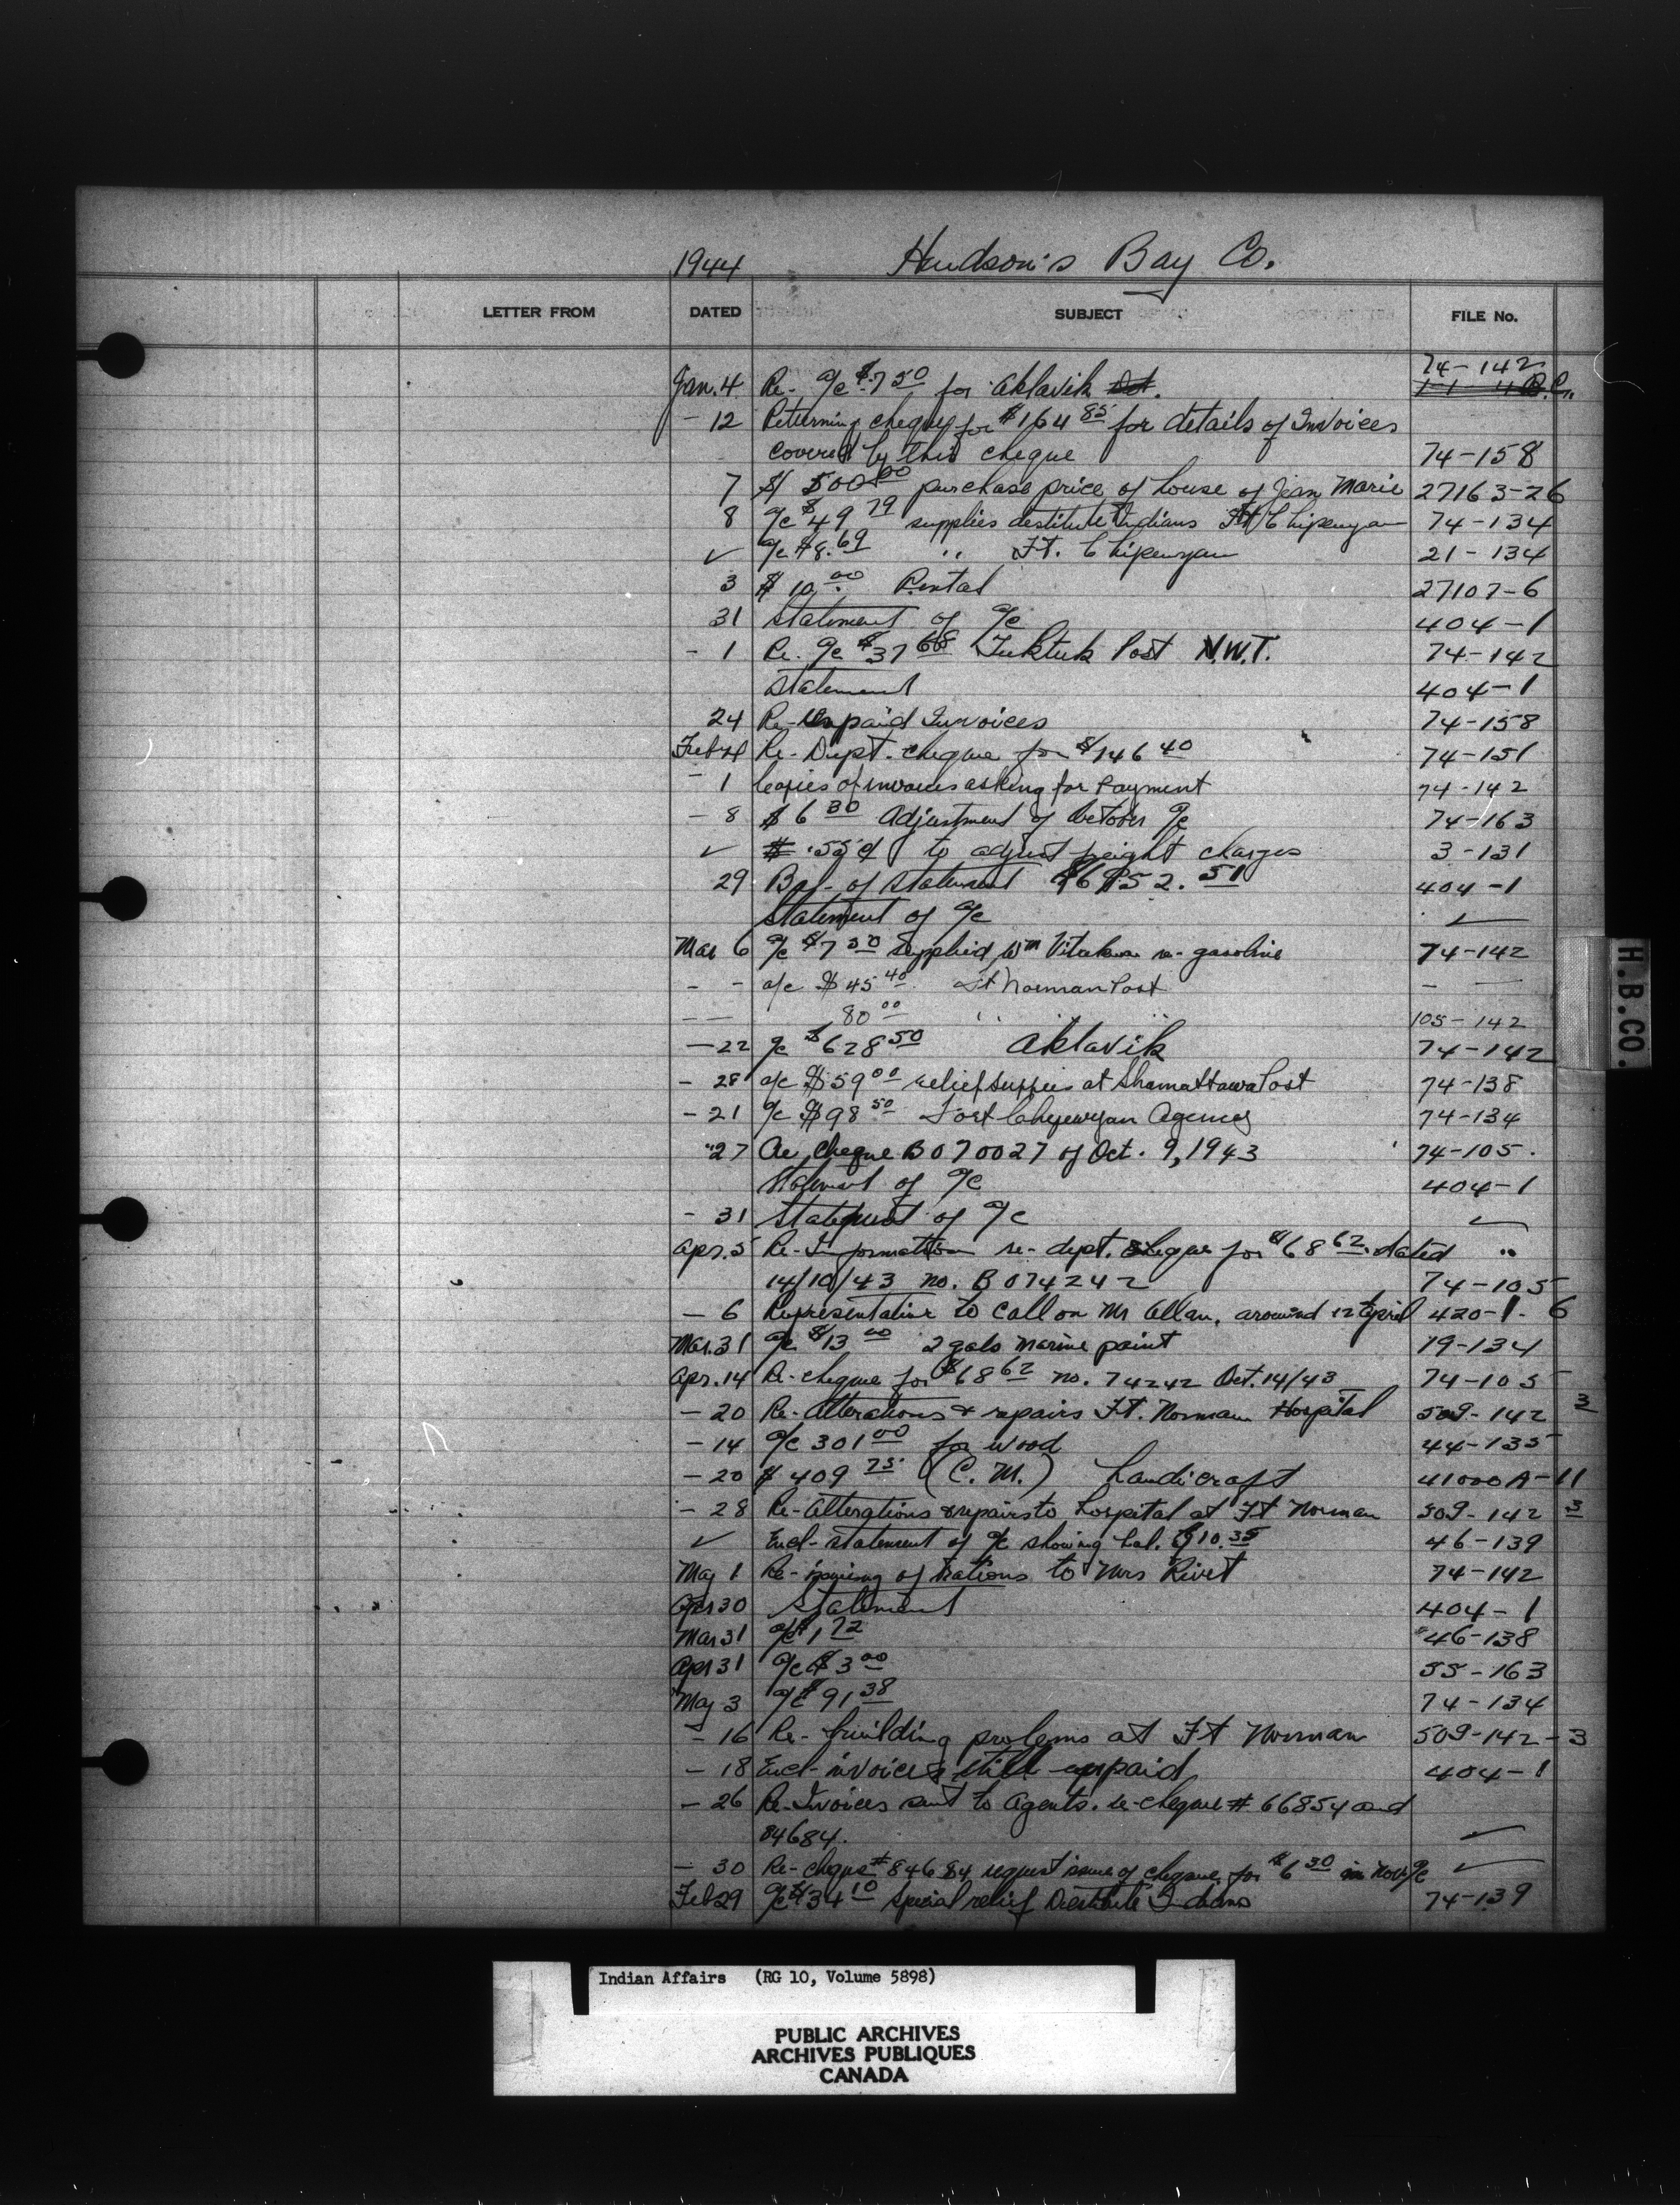 1944 Hudson's Bay Co.
LETTER FROM DATED SUBJECT FILE No.
74-142
Jan. 4 Re- a/c $7 50 for Aklavik
- 12 Returning cheque for $164 85 for details of Invoices
covered by this cheque 74-158
7 $500 00 purchase price of house of Jean Marie 27163-26
8 a/c $49 79 supplies destitute Indians Ft Chipewyan 74-134
✓ a/c $8.69 " Ft. Chipewyan 21-134
3 $10.00 Rental 27107-6
31 Statement of a/c 404-1
- 1 Re. a/c $37 68 Tuktuk Post N.W.T. 74-142
Statement 404-1
24 Re-Unpaid Invoices 74-158
Feb 4 Re- Dept. cheque for $146 40 74-151
- 1 Copies of invoices asking for Payment 74-142
- 8 $6 30 Adjustment of October a/c 74-163
✓ .55 ¢ to adjust freight charges 3-131
29 Bal- of Statement 404-1
Statement of a/c ✓
Mar 6 a/c $7 50 supplied Wm re- gasoline 74-142
- - a/c $45 40 Ft Norman Post - -
- - 80 00 " " 105-142
- 22 a/c $628 50 Aklavik 74-142
- 28 a/c $59 00 relief supplies at Shamattawa Post 74-138
- 21 a/c $98 50 Fort Chipewyan Agency 74-134
"27 Re cheque B070027 of Oct. 9, 1943 74-105.
Statement of a/c 404-1
- 31 Statement of a/c ✓
Apr. 5 Re-Information re- dept. cheque for $68 62 dated "
14/10/43 no. B074242 74-105
- 6 Representative to call on Mr Allan, around 12 April 420-1-6
Mar. 31 a/c $13 00 2 gals marine paint 19-134
Apr. 14 Re-cheque for $68 62 no. 74242 Oct. 14/43 74-105
- 20 Re-Alterations & repairs Ft. Norman Hospital 509-142 3
- 14 a/c 301 00 for wood 44-135
- 20 $409 75 (C. M.) handicraft 41000A-11
- 28 Re-Alterations & repairs to hospital at Ft Norman 509-142 3
✓ Encl-statement of a/c showing bal. $10.35 46-139
May 1 Re-issuing of rations to Mrs Rivet 74-142
Apr 30 Statement 404-1
Mar 31 a/c $1 72 46-138
Apr 31 a/c $3 00 55-163
May 3 a/c $91 38 74-134
- 16 Re- building prolems at Ft Norman 509-142-3
- 18 Encl-invoices still unpaid 404-1
- 26 Re-Invoices sent to Agents. re-cheque # 66854 and
84684. ✓
- 30 Re-cheque #84684 request issue of cheque for $6 30 in Nov. a/c ✓
Feb 29 a/c $34 10 special relief Destitute Indians 74-139
H.B.CO.
Indian Affairs (RG 10, Volume 5898)
PUBLIC ARCHIVES
ARCHIVES PUBLIQUES
CANADA